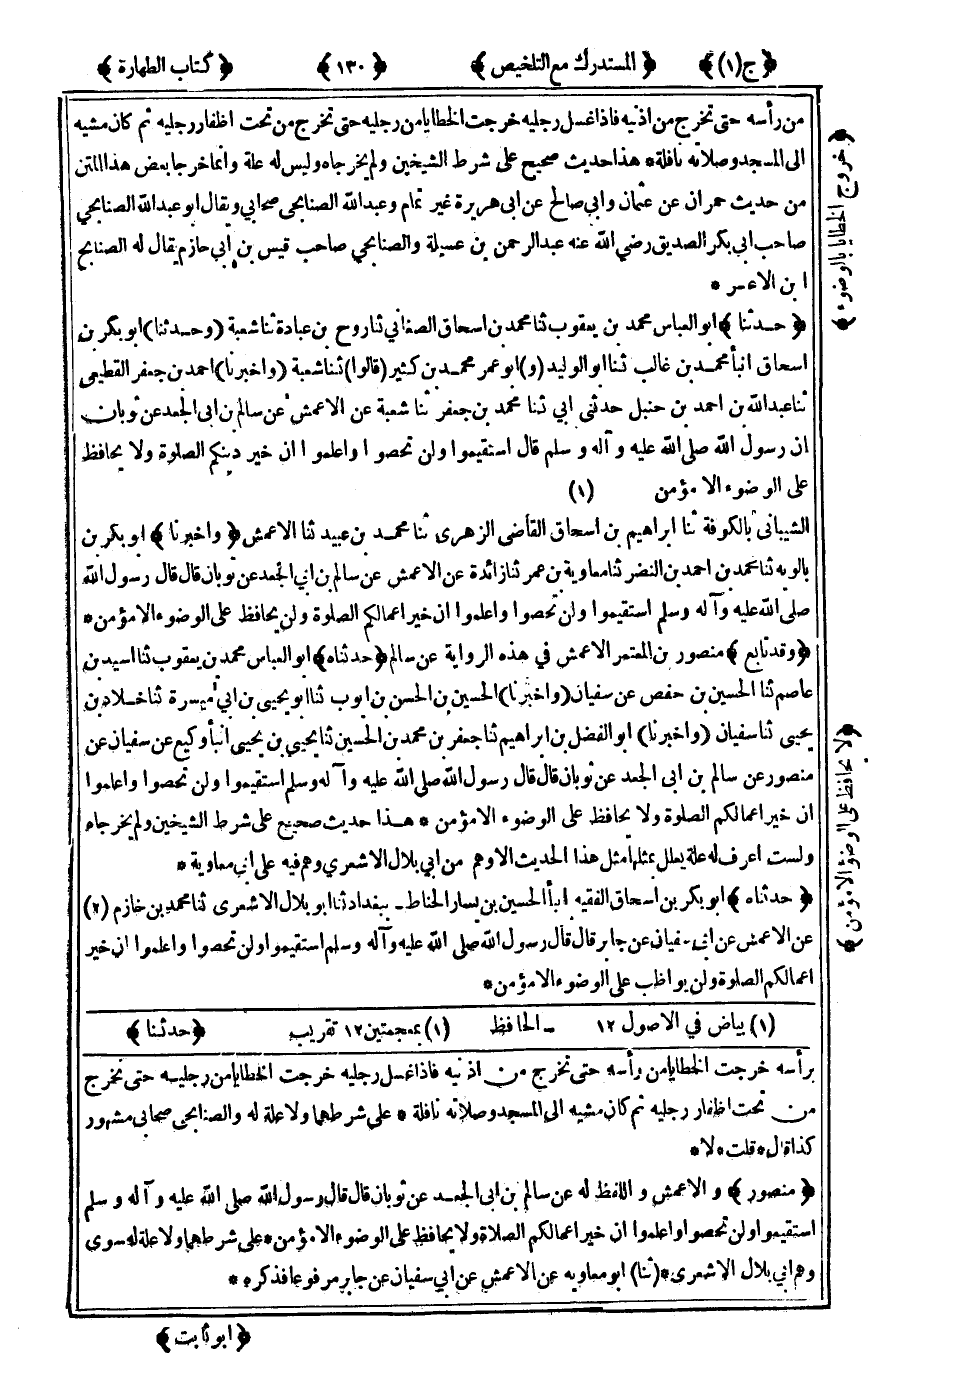 ﴿ ج (١) ﴾ ﴿ المستدرك مع التلخيص ﴾ ﴿ ١٣٠ ﴾ ﴿ كتاب الطهارة ﴾
من رأسه حتى تخرج من اذنيه فاذا غسل رجليه خرجت الخطايا من رجليه حتى تخرج من تحت اظفار رجليه ثم كان مشيه
الى المسجد وصلاته نافلة * هذا حديث صحيح على شرط الشيخين ولم يخرجاه وليس له علة وانما خرجا بعض هذا المتن
من حديث حمران عن عثمان وابي صالح عن ابى هريرة غير تمام وعبدالله الصنابحى صحابي ويقال ابو عبدالله الصنابحي
صاحب ابى بكر الصديق رضي الله عنه عبدالرحمن بن عسيلة والصنابحي صاحب قيس بن ابي حازم يقال له الصنابح
ابن الاعسر *
﴿ حدثنا ﴾ ابو العباس محمد بن يعقوب ثنا محمد بن اسحاق الصغاني ثنا روح بن عبادة ثنا شعبة (وحدثنا) ابو بكر بن
اسحاق انبأ محمد بن غالب ثنا ابو الوليد (و) ابو عمر محمد بن كثير (قالوا) ثنا شعبة (واخبرنا) احمد بن جعفر القطيعى
ثنا عبدالله بن احمد بن حنبل حدثنى ابي ثنا محمد بن جعفر ثنا شعبة عن الاعمش عن سالم بن ابى الجعد عن ثوبان
ان رسول الله صلى الله عليه و آله و سلم قال استقيموا ولن تحصوا واعلموا ان خير دينكم الصلوة ولا يحافظ
على الوضوء الا مؤمن (١)
الشيبانى بالكوفة ثنا ابراهيم بن اسحاق القاضى الزهرى ثنا محمد بن عبيد ثنا الاعمش ﴿ واخبرنا ﴾ ابو بكر بن
بالويه ثنا محمد بن احمد بن النضر ثنا معاوية بن عمر ثنا زائدة عن الاعمش عن سالم بن ابي الجعد عن ثوبان قال قال رسول الله
صلى الله عليه وآله وسلم استقيموا ولن تحصوا واعلموا ان خير اعمالكم الصلوة ولن يحافظ على الوضوء الا مؤمن *
﴿ وقد تابع ﴾ منصور بن المعتمر الاعمش في هذه الرواية عن سالم ﴿ حدثناه ﴾ ابو العباس محمد بن يعقوب ثنا اسيد بن
عاصم ثنا الحسين بن حفص عن سفيان (واخبرنا) الحسين بن الحسن بن ايوب ثنا ابو يحيى بن ابي ميسرة ثنا خلاد بن
يحيى ثنا سفيان (واخبرنا) ابو الفضل بن ابراهيم ثنا جعفر بن محمد بن الحسين ثنا يحيى بن يحيى انبأ وكيع عن سفيان عن
منصور عن سالم بن ابى الجعد عن ثوبان قال قال رسول الله صلى الله عليه وآله وسلم استقيموا ولن تحصوا واعلموا
ان خير اعمالكم الصلوة ولا يحافظ على الوضوء الا مؤمن * هذا حديث صحيح على شرط الشيخين ولم يخرجاه
ولست اعرف له علة يعلل بمثلها مثل هذا الحديث الا وهم من ابي بلال الاشعري وهم فيه على ابي معاوية *
﴿ حدثناه ﴾ ابو بكر بن اسحاق الفقيه انبأ الحسين بن يسار الخناط - ببغداد ثنا ابو بلال الاشعرى ثنا محمد بن خازم (٢)
عن الاعمش عن ابي سفيان عن جابر قال قال رسول الله صلى الله عليه وآله وسلم استقيموا ولن تحصوا واعلموا ان خير
اعمالكم الصلوة ولن يواظب على الوضوء الا مؤمن *
(١) بياض في الاصول ١٢ - الحافظ (١) بمعجمتين ١٢ تقريب ﴿ حدثنا ﴾
برأسه خرجت الخطايا من رأسه حتى تخرج من اذنيه فاذا غسل رجليه خرجت الخطايا من رجليه حتى تخرج
من تحت اظفار رجليه ثم كان مشيه الى المسجد وصلاته نافلة * على شرطهما ولا علة له والصنابحى صحابى مشهور
كذا قال * قلت * لا *
﴿ منصور ﴾ و الاعمش و اللفظ له عن سالم بن ابى الجعد عن ثوبان قال قال رسول الله صلى الله عليه و آله و سلم
استقيموا ولن تحصوا واعلموا ان خير اعمالكم الصلاة ولا يحافظ على الوضوء الا مؤمن * على شرطهما ولا علة له سوى
وهم ابي بلال الاشعرى * (ثنا) ابو معاويه عن الاعمش عن ابي سفيان عن جابر مرفوعا فذكره *
﴿ ابو ثابت ﴾
﴿ خروج الخطايا بالوضوء ﴾
﴿ لا يحافظ على الوضوء الا مؤمن ﴾